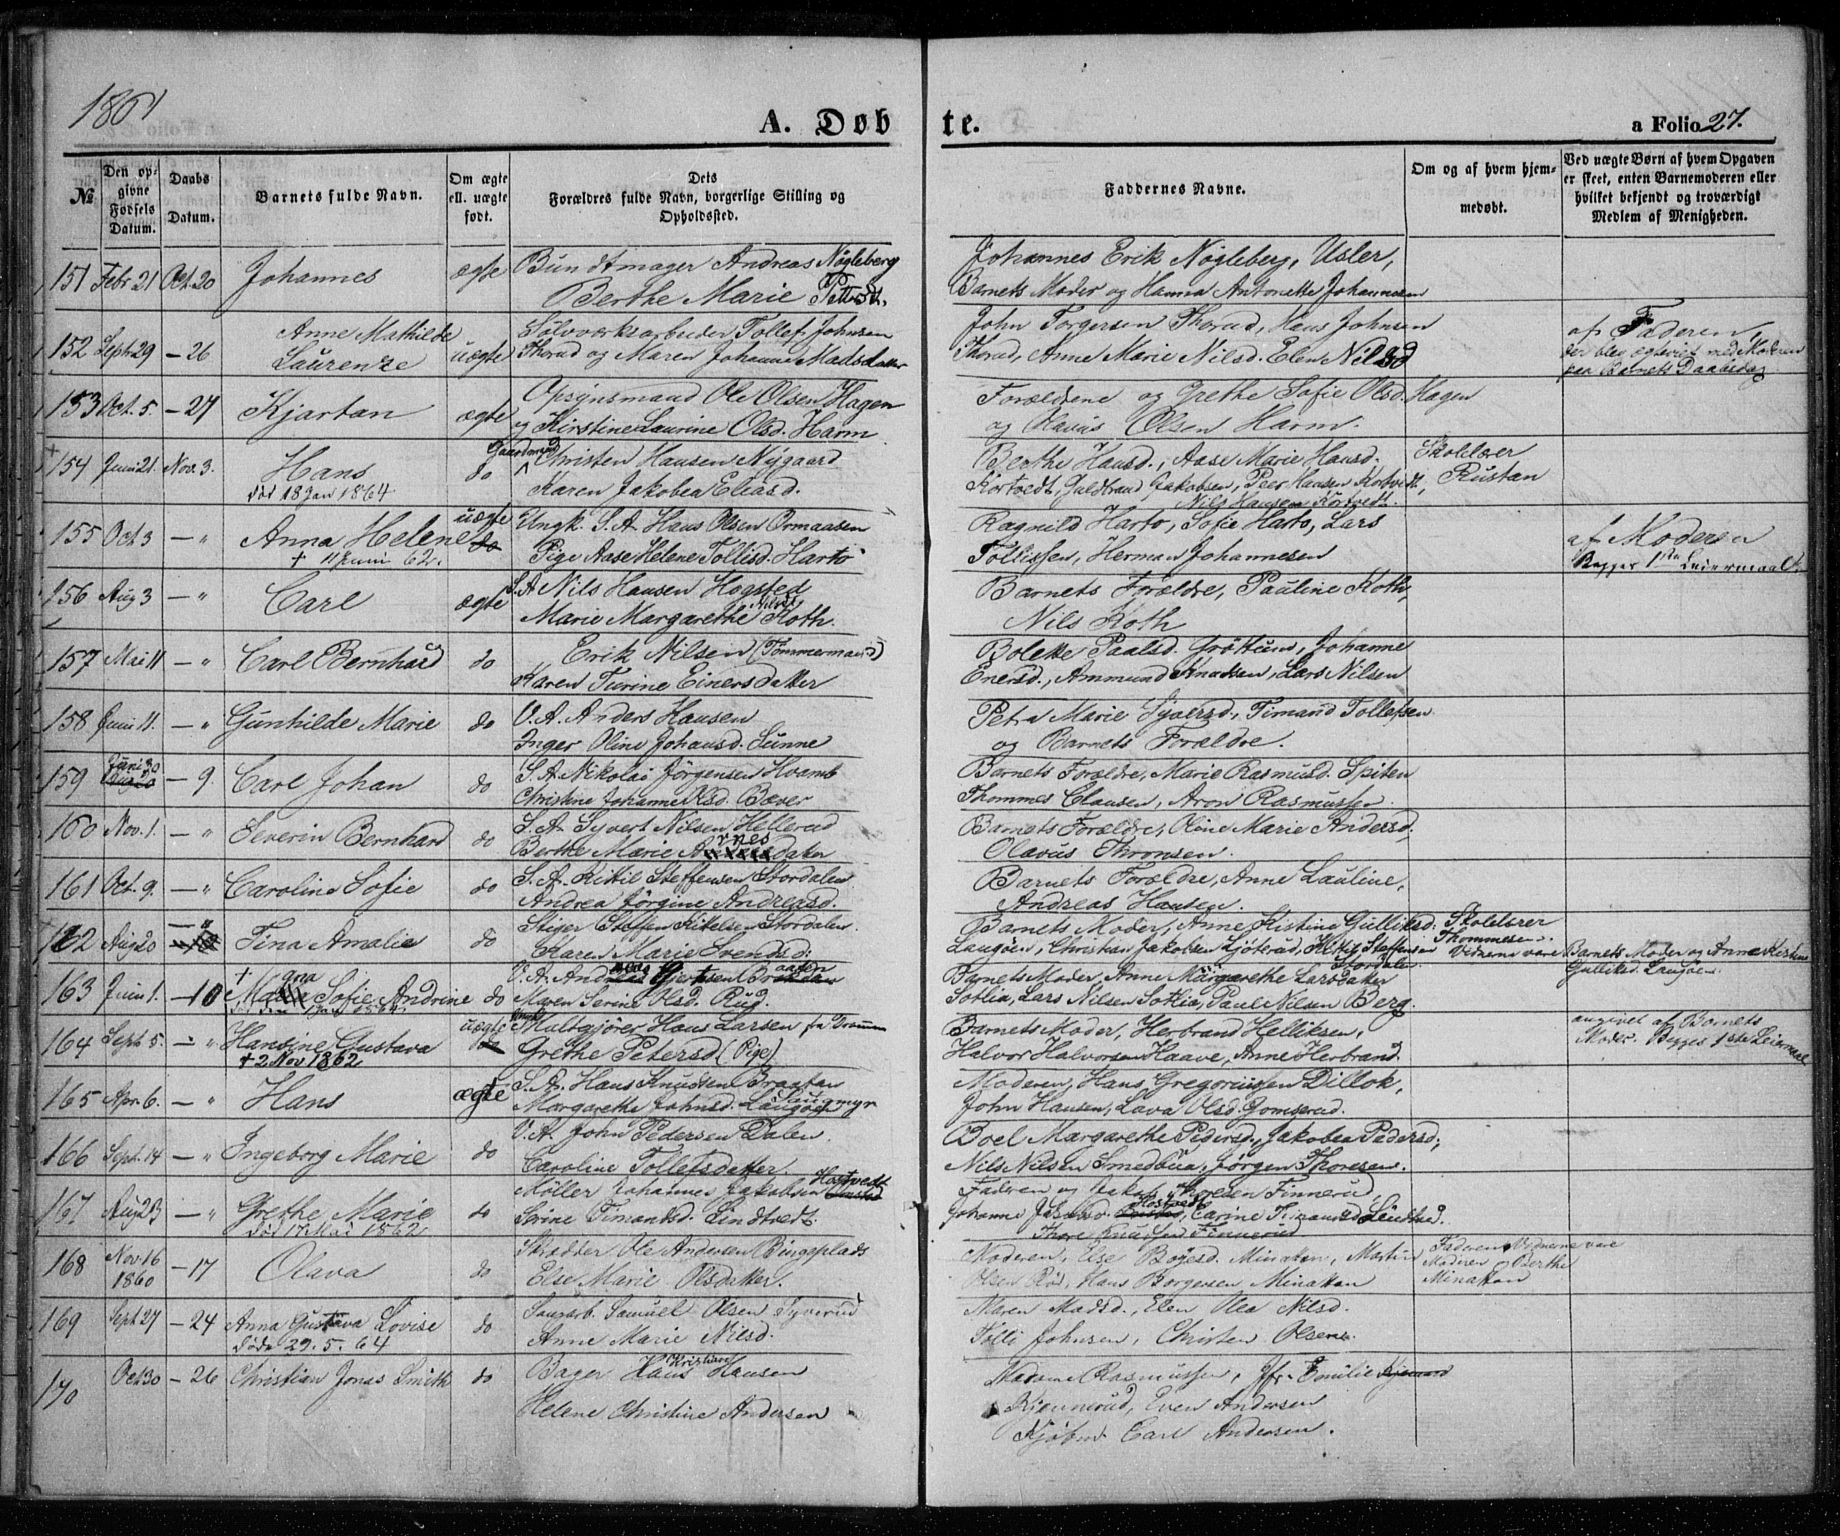 1861
A. Døb
te.
a Folio 27.
№
Den opgivne Fødsels Datum.
Daabs Datum.
Barnets fulde Navn.
Om ægte ell. uægte født.
Dets Forældres fulde Navn, borgerlige Stilling og Opholdssted.
Faddernes Navne.
Om og af hvem hjemmedøbt.
Ved uægte Børn af hvem Opgaven er skeet, enten Barnemoderen eller hvilket bekjendt og troværdigt Medlem af Menigheden.
151 Febr 21 Oct. 20 Johannes ægte Bundtmager Andreas Nøgleberg
Berthe Marie
Johannes Erik Nøgleberg, Usler,
Barnets Moder og Hanna Antonette Johannesen
152 Septb 29 — 26 Anne Mathilde
Laurenze uægte Sølvværksarbeider Tollef Johnsen
Thorud og Maren Johanne Madsdatter
John Torgersen Thorud, Hans Johnsen
Thorud, Anne Marie Nilsd. Elen Nilsd
af Faderen
der blev ægteviet med Moderen
paa Barnets Daabsdag
153 Oct. 5 — 27 Kjartan ægte Opsynsmand Ole Olsen Hagen
og Kirstine Laurine Olsd. Harm
Forældrene og Grethe Sofie Olsd. Hagen
og Olsen Harm.
154 Juni 21. Nov. 3. Hans
død 18 Jan 1864
do Gaardmand Christen Hansen Nygaard
Karen Jakobea Eliasd.
Berthe Hansd., Aase Marie Hansd.
Kortvedt, Guldbrand Jakobsen, Peer Hansen Kortvedt,
Nils Hansen Kortvedt.
Skolelærer
Rustan
155 Oct 3 — " Anna Helene
† 11 Juni 62.
uægte do Ungk. S.A. Hans Olsen Ormaasen
Pige Aase Helene Tollisd. Harto
Ragnild Harto, Sofie Harto, Lars
Tollissen, Herman Johannesen
af Moderen
Begges 1ste Leiermaal
156 Aug 3 — " Carl ægte S.A. Nils Hansen Hogsted
Marie Margarethe Nilsd. Koth.
Barnets Forældre, Pauline Koth,
Nils Koth
157 Mai 11 — " Carl Bernhard do Erik Nilsen (Tømmermand)
Karen Turine Einersdatter
Bolette Paalsd. Grøtlund, Johanne
Enersd., Ammund Knudsen, Lars Nilsen
158 Juni 11. — " Gunhilde Marie do V.A. Anders Hansen
Inger Oline Johansd. Lunne
Petra Marie Syversd, Timand Tollefsen
og Barnets Forældre.
159 Juni 30 Aug 20 — 9. Carl Johan do S.A. Nikolai Jørgensen Hvamb
Christine Johanne Olsd. Bæver
Barnets Forældre, Marie Rasmusd. Spiten
Thommes Clausen, Aron Rasmussen.
160 Nov. 1. — " Severin Bernhard do S.A. Syvert Nilsen Hellerud
Berthe Marie datter
Barnets Forældre, Oline Marie Andersd,
Olavus Thronsen.
161 Oct. 9. — " Caroline Sofie do S.A. Kittil Steffensen Stordalen
Andrea Jørgine Andreasd.
Barnets Forældre, Anne Lauline,
Andreas Hansen.
162 Aug 20 — " Tina Amalie do Stiger Steffen Kittelsen Stordalen.
Karen Marie Svendsd.
Barnets Moder, Anne Kistine Gulliksd.
Laugøen, Christian Jakobsen Ljøterud, Kittil Steffensen
Stordalen
Skolelærer
Thommesen.
Vidnerne vare Barnets Moder og Anne Kistine
Gulliksd. Laugøen.
163 Juni 1. — 10 † Sofie Andrine do V.A.
Maren Serine Olsd. Rud.
Barnets Moder, Anne Margarethe Larsdatter
Sotlia, Lars Nilsen Sotlia, Paul Nilsen Berg.
164 Septb 5. — " Hansine Gustava
† 2 Nov 1862
uægte Maltgjører Hans Larsen fra Drammen
Grethe Petersd (Pige)
Barnets Moder, Herbrand Helliksen,
Halvor Halvorsen Haave, Anne Herbrand.
angivet af Barnets
Moder. Begges 1ste Leiermaal
165 Apr. 6. — " Hans ægte S.A. Hans Knudsen Braatan
Margarethe Johnsd. Laugmyr
Moderen, Hans Gregoriussen Dillok,
John Hansen, Lava Olsd. Gomserud.
166 Sept. 14 — " Ingeborg Marie do V.A. John Pedersen Dalen.
Caroline Tollefsdatter.
Boel Margarethe Pedersd, Jakobea Pedersd,
Nils Nilsen Smedbua, Jørgen Thoresen.
167 Aug 23 — " Grethe Marie
død 17 Mai 1862
do Møller Johannes Jakobsen Hostvedt
Serine Timandsd. Lindtvedt.
Faderen og Jakob Thoresen Finnerud,
Johanne Jakobsd. Hostvedt, Carine Timansd Lindtved.
Thore Knudsen Finnerud
168 Nov 16
1860 — 17 Olava do Skrædder Ole Andersen Bingeplads
Else Marie Olsdatter.
Moderen, Else Boyesd. Minakan, Martin
Olsen Rös, Hans Borgersen Minakan
Faderen Vidnerne vare
Moderen Berthe
Minakan
169 Sept. 27 — 24 Anna Gustava Lovise
døde 29. 5. 64
do Saugarb. Samuel Olsen Syverud
Anne Marie Nilsd.
Maren Madsd., Elen Olea Nilsd.
Tolli Johnsen, Christen Olsen.
170 Oct 30 — 26 Christian Jonas Smith do Bager Hans Kristian Hansen
Helene Christine Andersen
Madame Rasmussen, Jfr. Emilie
Kjennerud, Even Andersen
Kjøbmd. Carl Andersen.